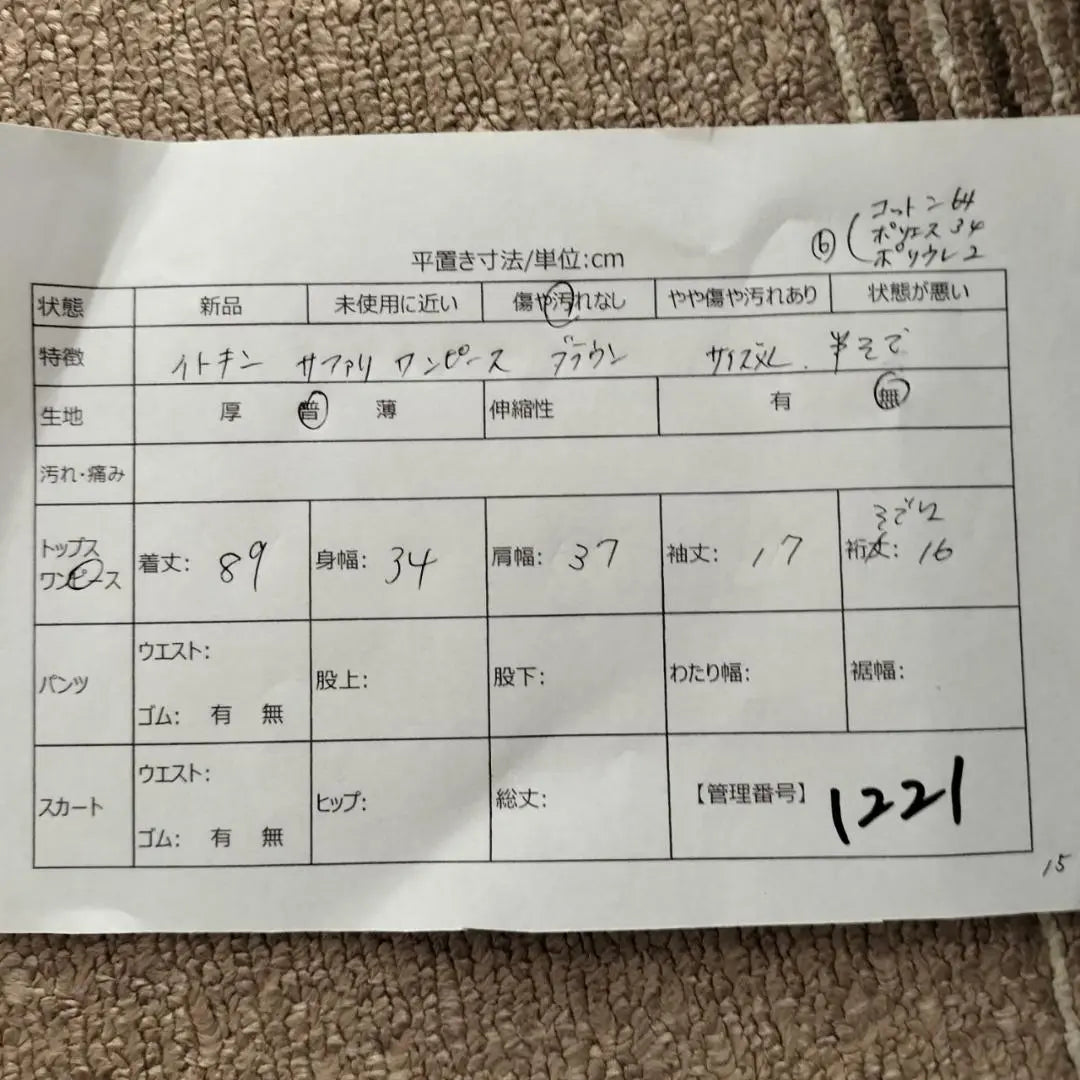 コットン 64
⑥ ( ポリエス 34
ポリウレ 2
平置き寸法/単位:cm
状態 新品 未使用に近い 傷や汚れなし やや傷や汚れあり 状態が悪い
特徴 イトキン サファリ ワンピース ブラウン サイズXL. 半そで
生地 厚 普 薄 伸縮性 有 無
汚れ・痛み
そで口
トップス
ワンピース 着丈: 89 身幅: 34 肩幅: 37 袖丈: 17 裄丈: 16
パンツ ウエスト: 股上: 股下: わたり幅: 裾幅:
ゴム: 有 無
スカート ウエスト: ヒップ: 総丈: 【管理番号】 1221
ゴム: 有 無
15